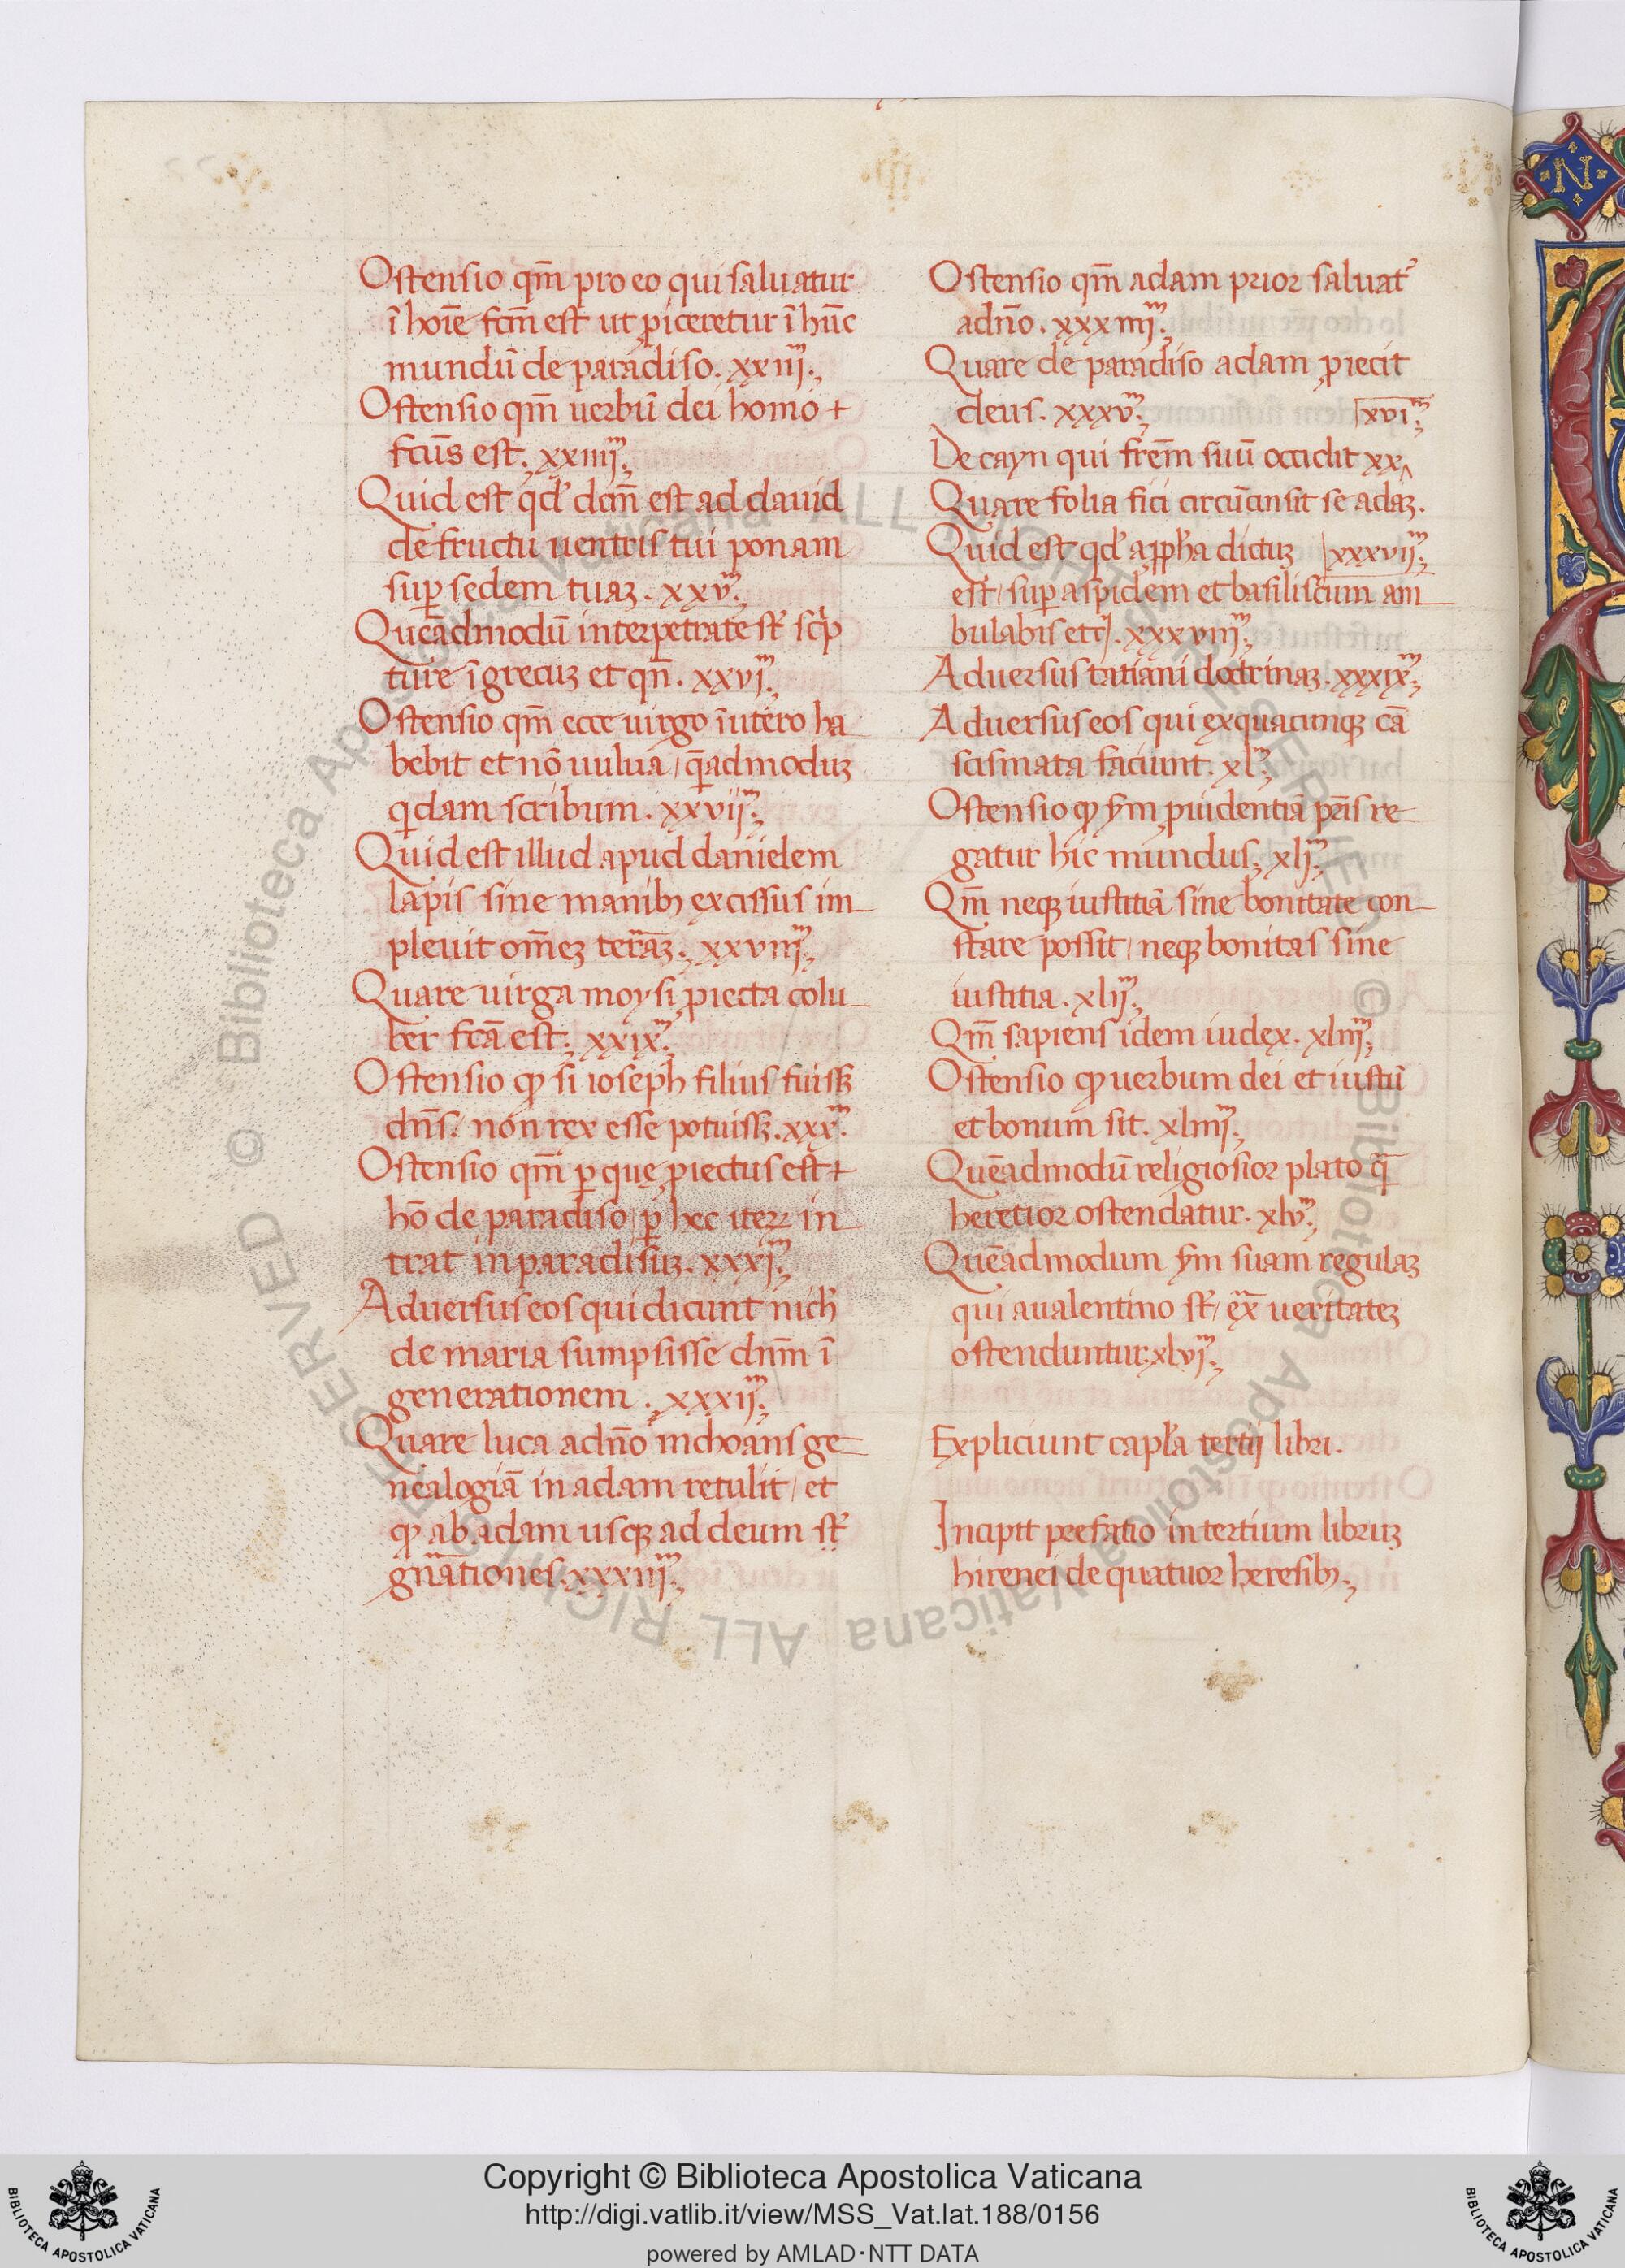 Ostensio qm̄ pro eo qui saluatur
ī hoīe fcm̄ est ut ꝓiceretur ī hūc
mundū de paradiso. xxiijᵐ.,
Ostensio qm̄ uerbū dei homo +
fcūs est., xxiiijᵐ.,
Quid est qd' dcm̄ est ad dauid
de fructu uentris tui ponam
suꝑ sedem tuaꝫ. xxvᵐ.,
Queādmodū interpetrate st' scⁱp
ture ī grecuꝫ et qn̄. xxvjᵐ.,
Ostensio qm̄ ecce uirgo ī utero ha
bebit et nō uulua / q̄admoduꝫ
qdam scribunt. xxvijᵐ.,
Quid est illud apud danielem
lapis sine manibꝫ excissus im
pleuit om̄eꝫ terāꝫ., xxviijᵐ.,
Quare uirga moysi ꝓiecta colu
ber fcā est., xxixᵐ.,
Ostensio ꝙ si ioseph filius fuissꝫ
dn̄s: non rex esse potuissꝫ. xxxᵐ.
Ostensio qm̄ ꝑ que ꝓiectus est +
hō de paradiso / ꝑ hec iteꝝ in
trat in paradisuꝫ. xxxjᵐ.,
Aduersus eos qui dicunt nich'
de maria sumpsisse dnm̄ ī
generationem ., xxxijᵐ.,
Quare luca adn̄o inchoans ge
nealogiā in adam retulit / et
ꝙ ab adam usqꝫ ad deum st'
gn̄ationes. xxxiijᵐ.,
Ostensio qm̄ adam prior saluat᷑
adn̄o. xxxiiijᵐ.,
Quare de paradiso adam ꝓiecit
deus. xxxvᵐ.,
xviᵐ.,
De cayn qui frēm suū occidit xx‸
Quare folia fici circūcinsit se adaꝫ.
Quid est qd' appha dictuꝫ
xxxvijᵐ.,
est / suꝑ aspidem et basiliscum am
bulabis etcꝫ. xxxviijᵐ.,
Aduersus tatiani doctrinaꝫ. xxxixᵐ.,
Aduersus eos qui ex quacunqꝫ cā
scismata faciunt. xlᵐ.,
Ostensio ꝙ ẏm ꝓuidentiā pr̄is re
gatur hic mundus., xljᵐ.,
Qm̄ neqꝫ iustitiā sine bonitate con
stare possit / neqꝫ bonitas sine
iustitia. xlijᵐ.,
Qm̄ sapiens idem iudex. xliijᵐ.,
Ostensio ꝙ uerbum dei et iustū
et bonum sit. xliiijᵐ.,
Quēadmodū religiosior plato q̄
heretior ostendatur. xlvᵐ.,
Quēadmodum ẏm suam regulaꝫ
qui aualentino st' / ex̄ ueritateꝫ
ostenduntur. xlvjᵐ.,
Expliciunt capl'a tertij libri.
Incipit prefatio in tertium libruꝫ
hirenei de quatuor heresibꝫ.,
N
Copyright © Biblioteca Apostolica Vaticana
http://digi.vatlib.it/view/MSS_Vat.lat.188/0156
powered by AMLAD·NTT DATA
BIBLIOTECA APOSTOLICA VATICANA
BIBLIOTECA APOSTOLICA VATICANA
© Biblioteca Apostolica Vaticana ALL RIGHTS RESERVED © Biblioteca Apostolica Vaticana ALL RIGHTS RESERVED